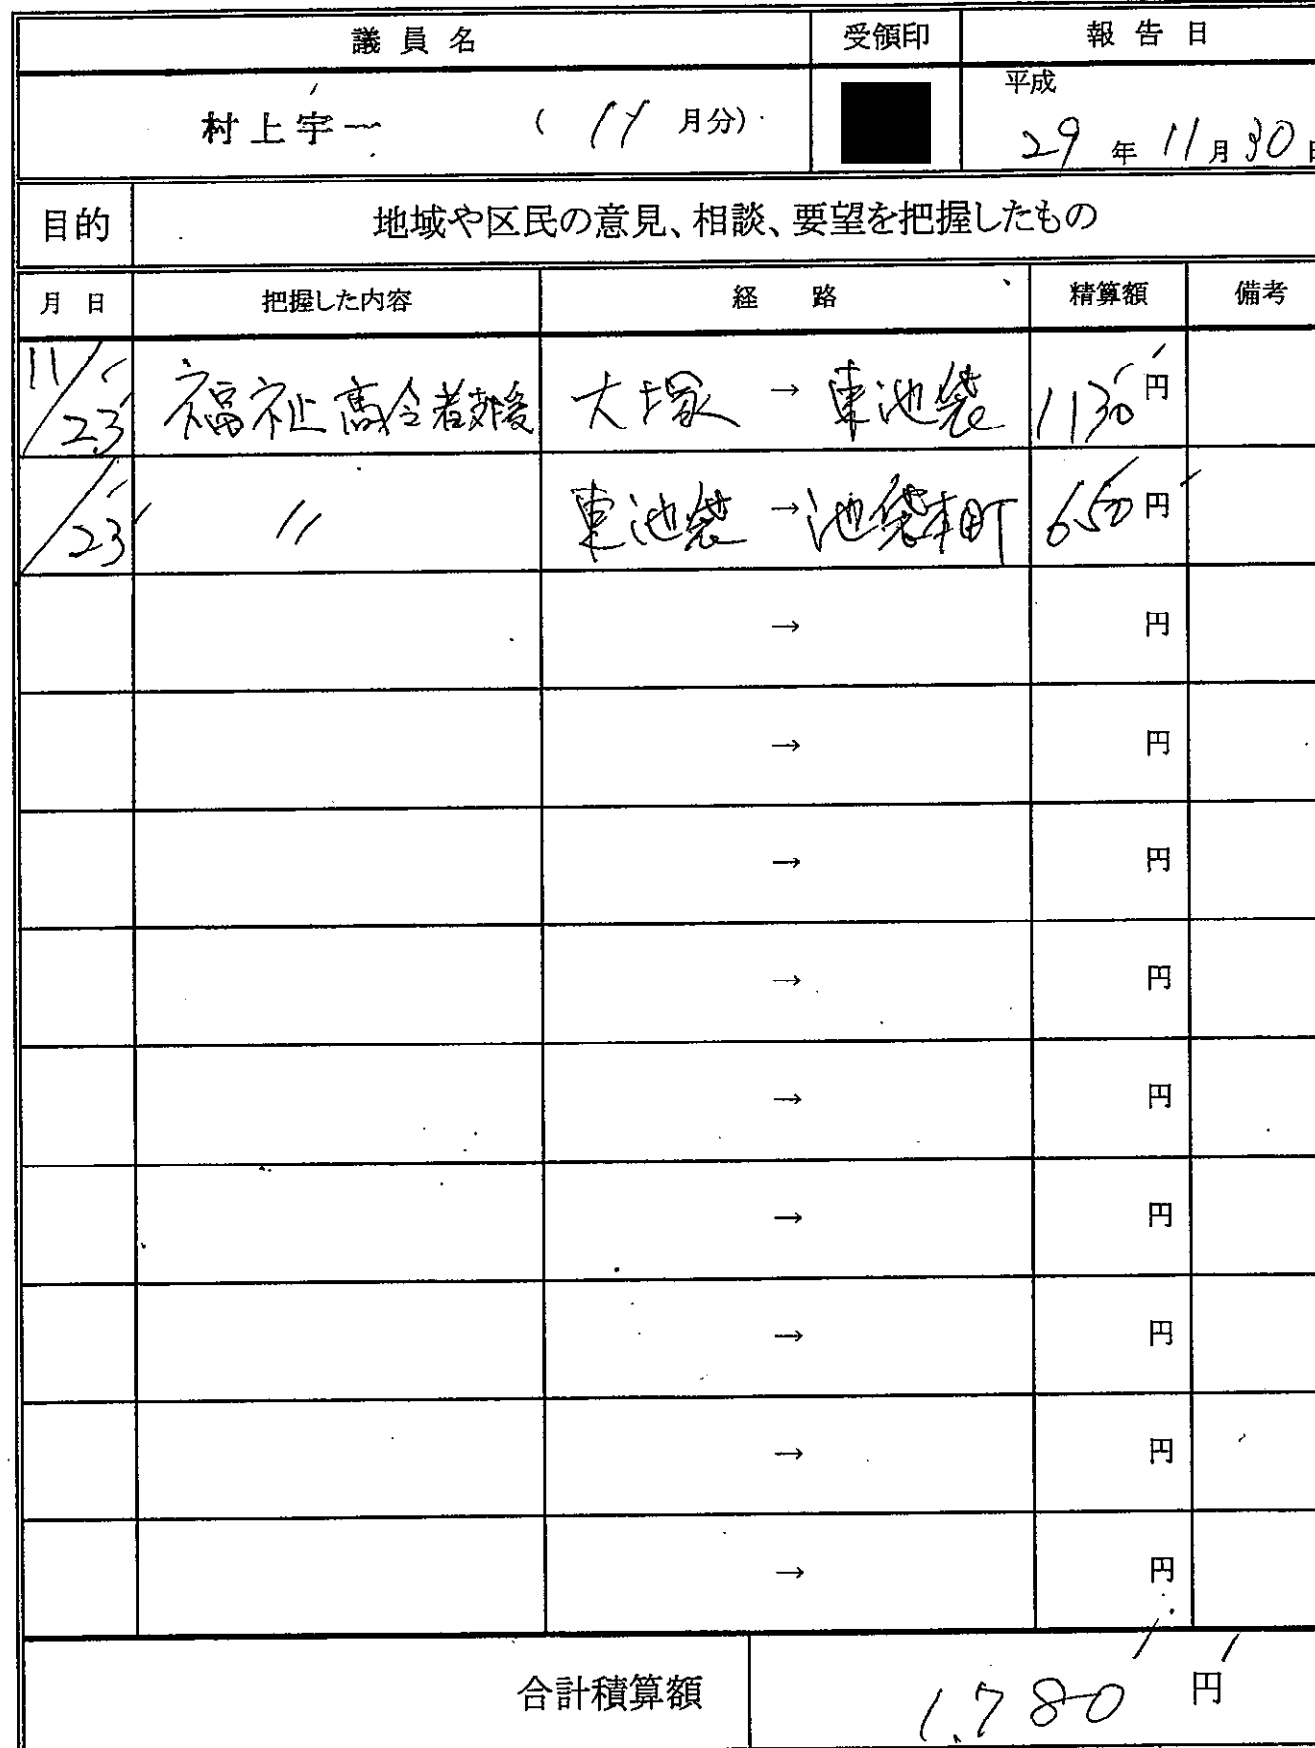 議員名 受領印 報告日
村上宇一 ( 11 月分) 平成 29 年 11 月 30 日
目的 地域や区民の意見、相談、要望を把握したもの
月 日 把握した内容 経 路 精算額 備考
11/23 福祉高令者支援 大塚 → 東池袋 1130 円
/23 〃 東池袋 → 池袋本町 650 円
→ 円
→ 円
→ 円
→ 円
→ 円
→ 円
→ 円
→ 円
→ 円
合計積算額 1,780 円